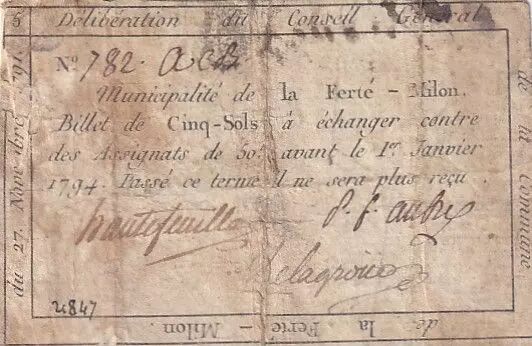 5 Délibération du Conseil Général
de la Commune
de la Ferté - Milon.
du 27 Novembre 
No. 782. ACB.
Municipalité de la Ferté - Milon.
Billet de Cinq-Sols à échanger contre
des Assignats de 50l. avant le 1er Janvier
1794. Passé ce terme il ne sera plus reçu.
hautefeuille P. f. aubry
Delagroue
24847